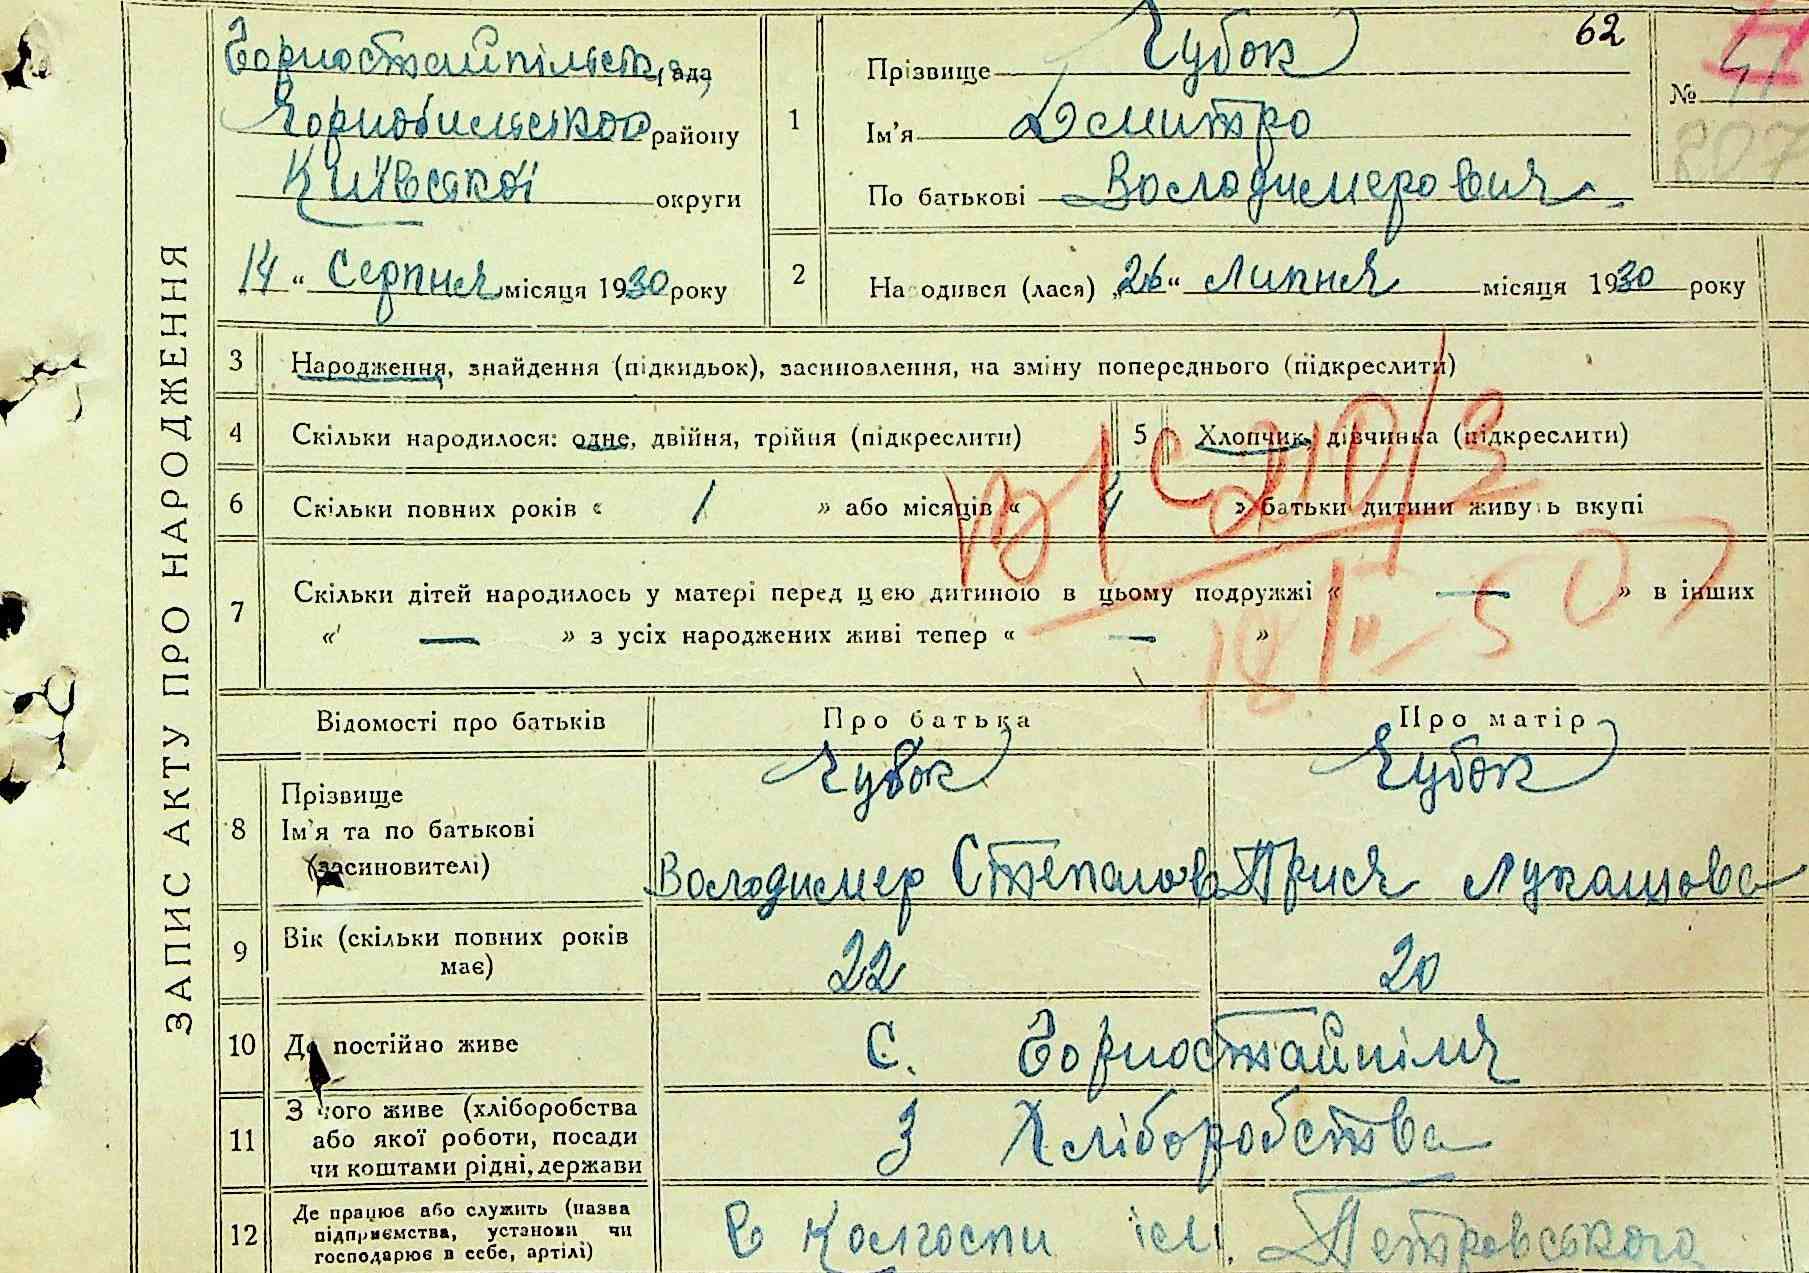 ЗАПИС АКТУ ПРО НАРОДЖЕННЯ
Горностайпільськ рада
Чорнобильського району
Київської округи
14 " Серпня місяця 1930 року
62
1 Прізвище Чубок
Ім'я Дмитро
По батькові Володимерович
№ 41
807
2 На одився (лася) „26“ Липня місяця 1930 року
3 Народження, знайдення (підкидьок), засиновлення, на зміну попереднього (підкреслити)
4 Скільки народилося: одне, двійня, трійня (підкреслити) 5 Хлопчик, дівчинка (підкреслити)
6 Скільки повних років « 1 » або місяців « 4 » батьки дитини живуть вкупі
7 Скільки дітей народилось у матері перед цею дитиною в цьому подружжі « — » в інших
« — » з усіх народжених живі тепер « — »
Відомості про батьків Про батька Про матір
8 Прізвище Чубок Чубок
Ім'я та по батькові
(засиновителі) Володимер Степанов Прися Лукашова
9 Вік (скільки повних років 22 20
має)
10 Де постійно живе с. Горностайпіля
11 З чого живе (хліборобства З Хліборобства
або якої роботи, посади
чи коштами рідні, держави
12 Де працює або служить (назва В Колгоспи ім. Петровського
підприємства, установи чи
господарює в себе, артілі)